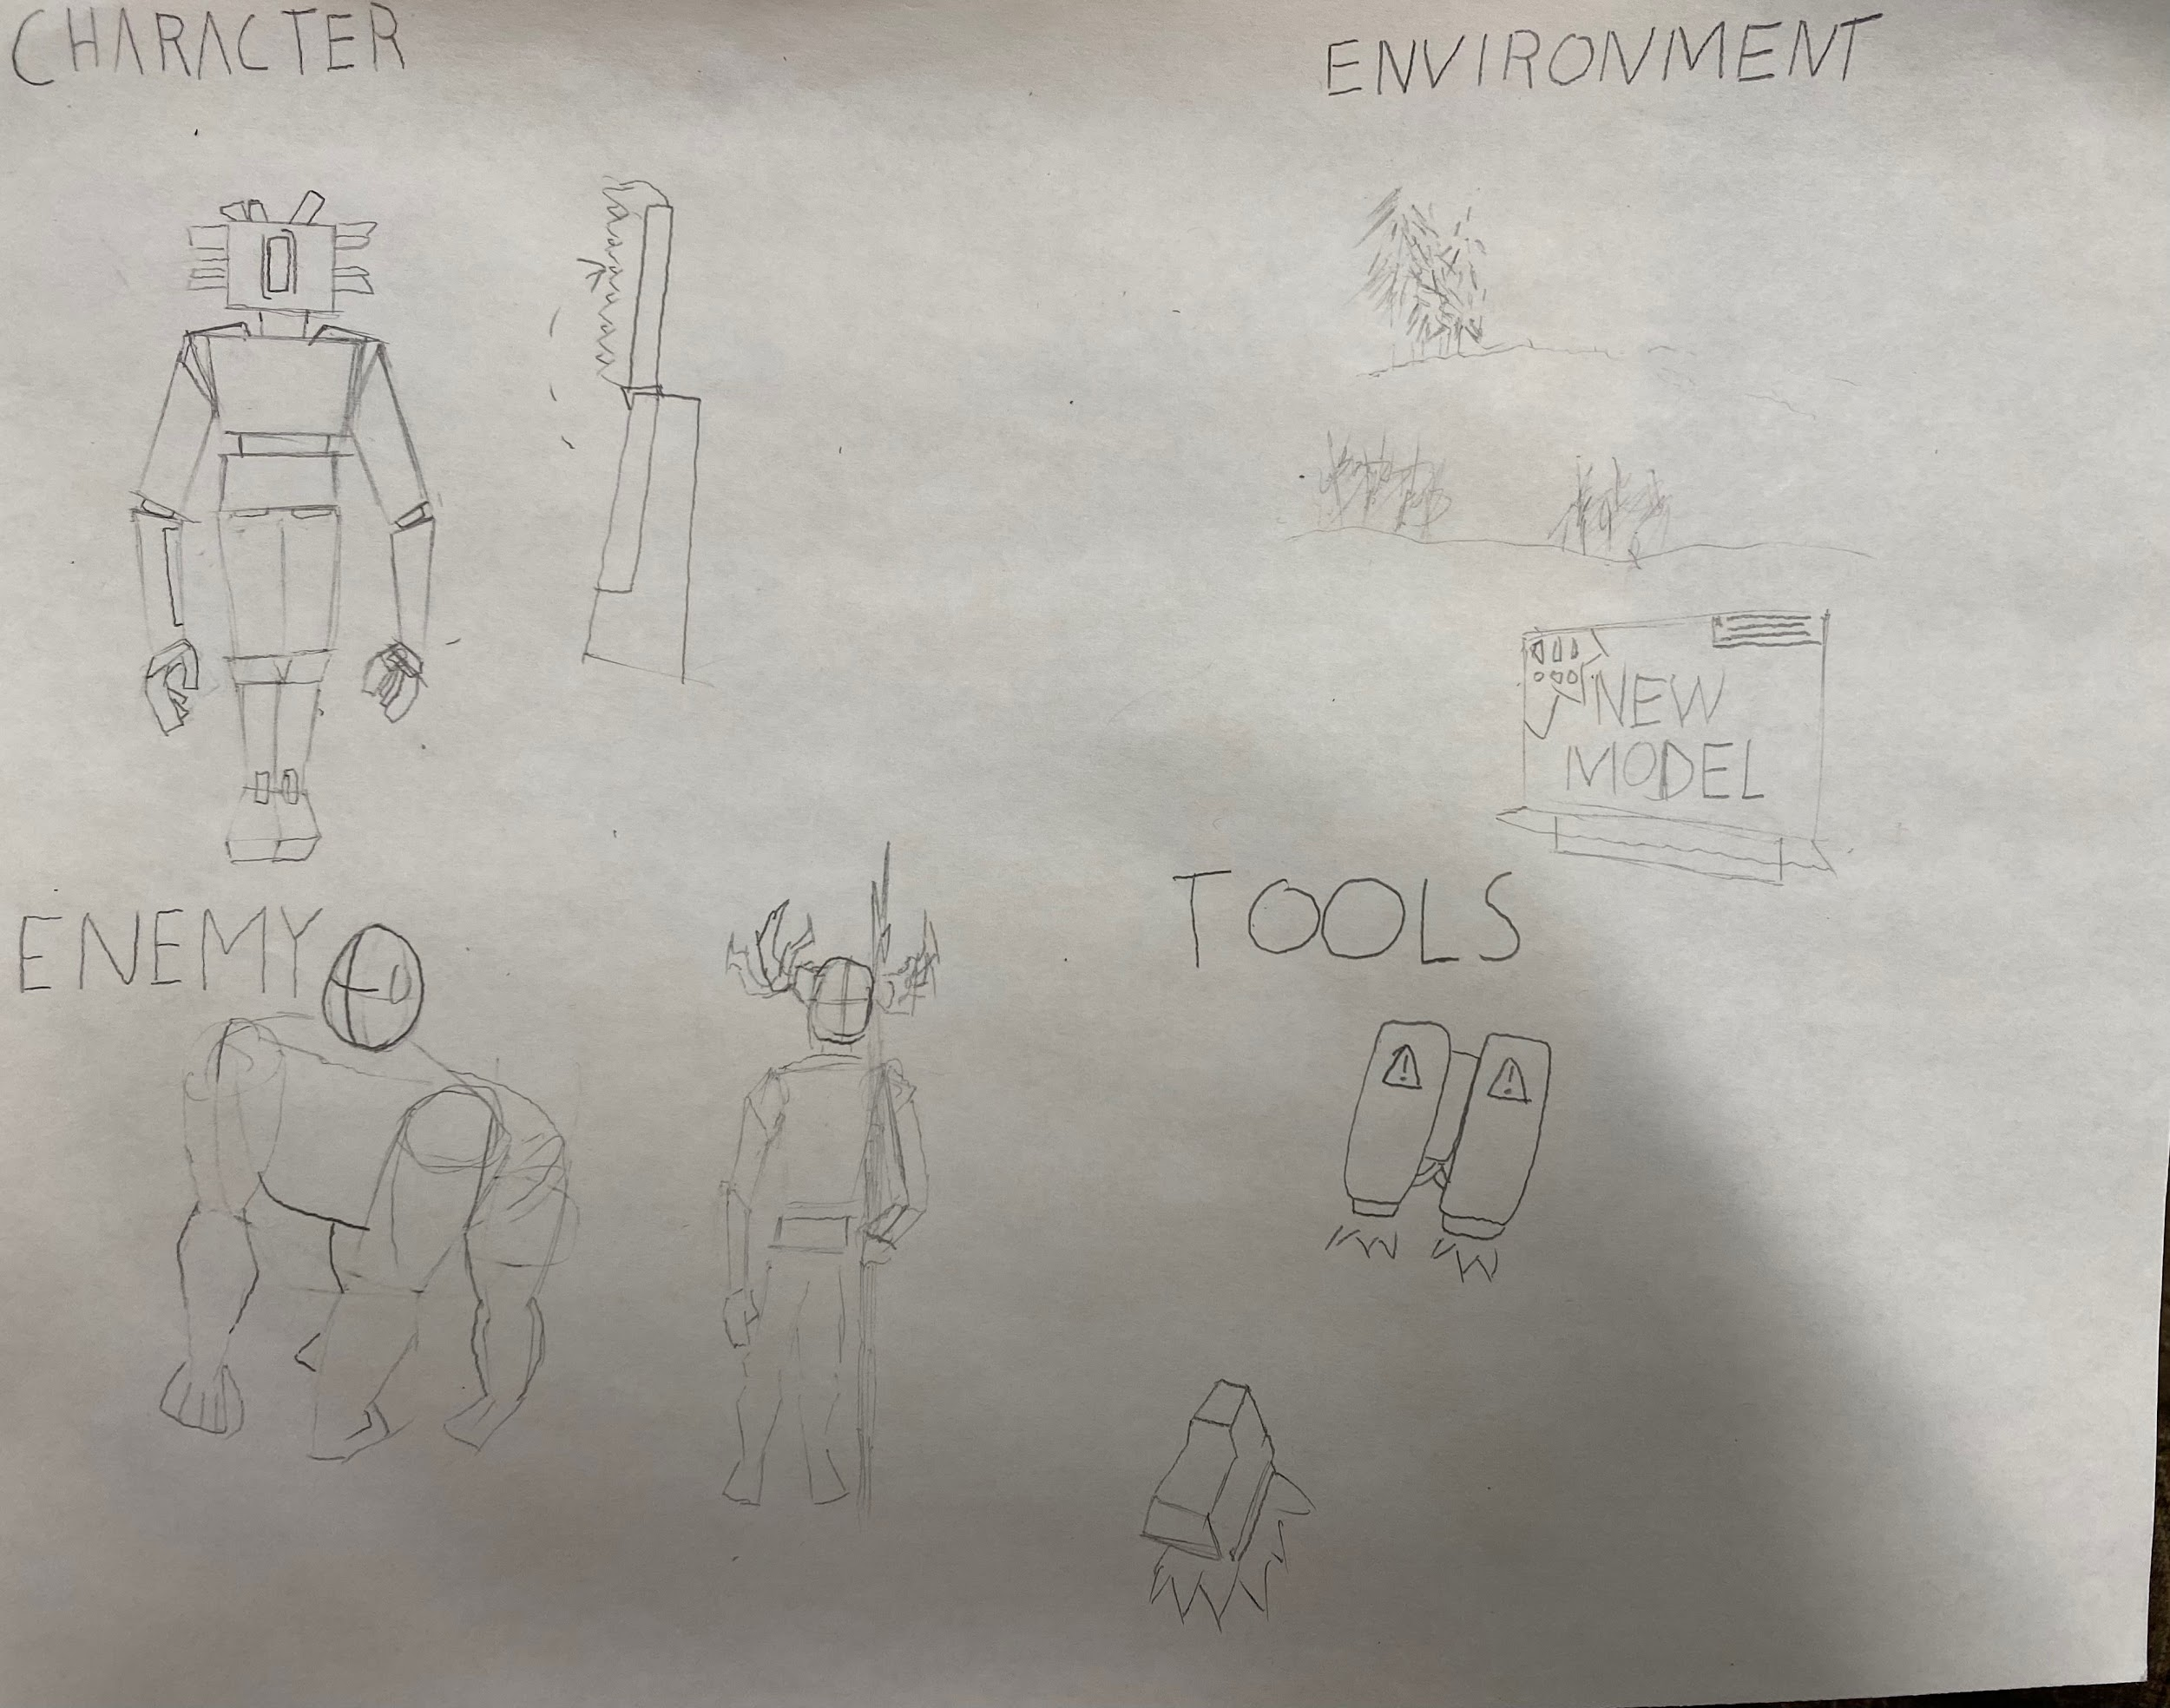 CHARACTER
ENVIRONMENT
NEW
MODEL
ENEMY
TOOLS
!
!